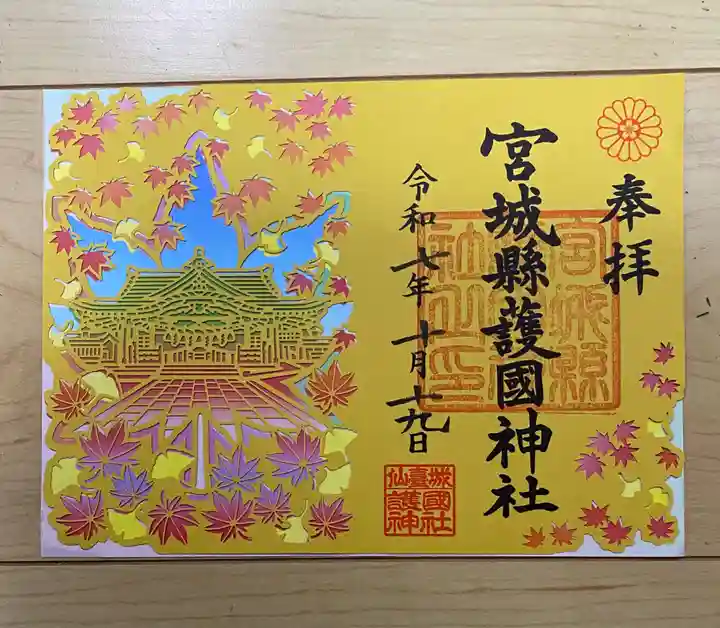 奉拝
宮城縣護國神社
令和七年十月十九日
宮城縣
社之印
城國社
仙臺護神